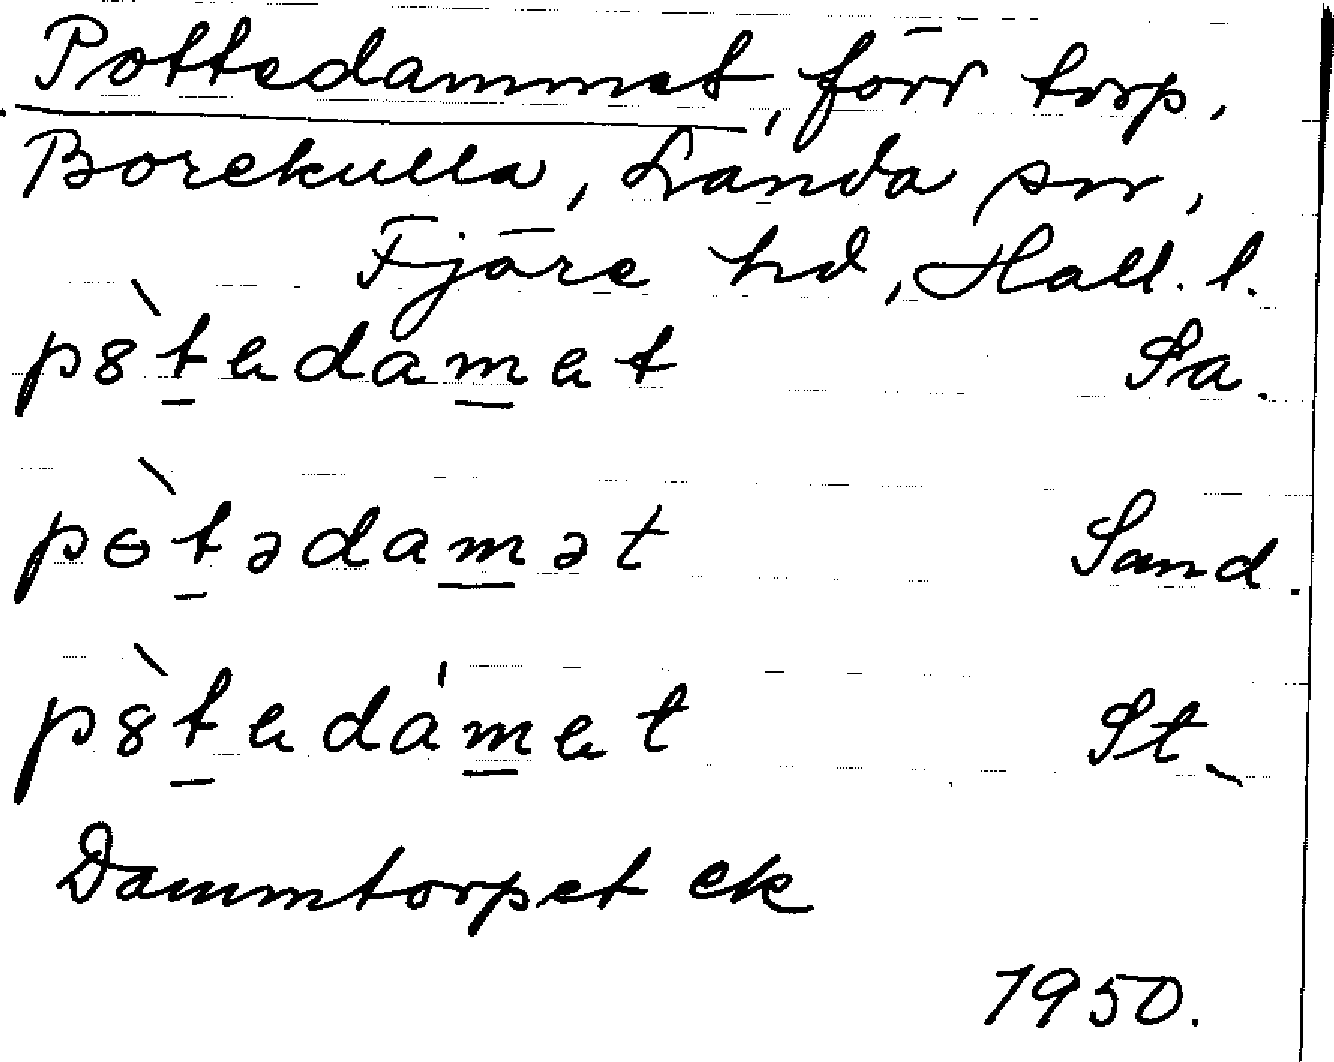 Pottedammet, förr torp,
Borekulla, Landa sn,
Fjäre hd, Hall. l.
pò̱tedam̱et Sa.
pɵ̀ṯədam̱ət Sand.
pò̱tedám̱et St.
Dammtorpet ek
1950.